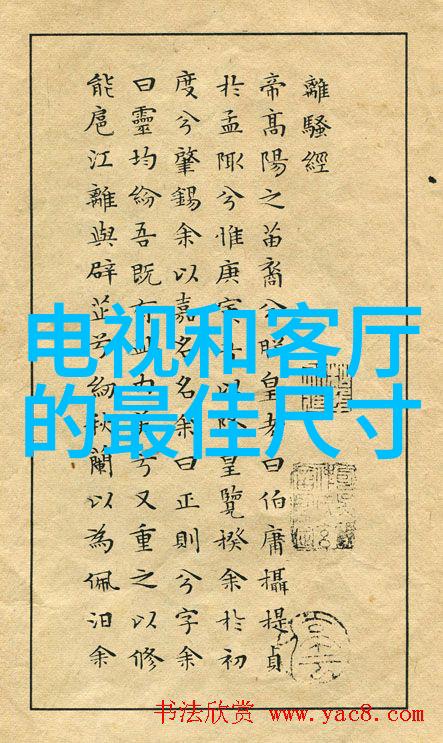 离騷經
帝髙陽之苗裔兮朕皇考曰伯庸攝提貞
於孟陬兮惟庚寅吾以降皇覽揆余於初
度兮肇錫余以嘉名名余曰正則兮字余
曰靈均紛吾既有此內美兮又重之以修
能扈江離與辟芷兮紉秋蘭以為佩汨余
电视和客厅
的最佳尺寸
书法欣赏 www.yac8.com